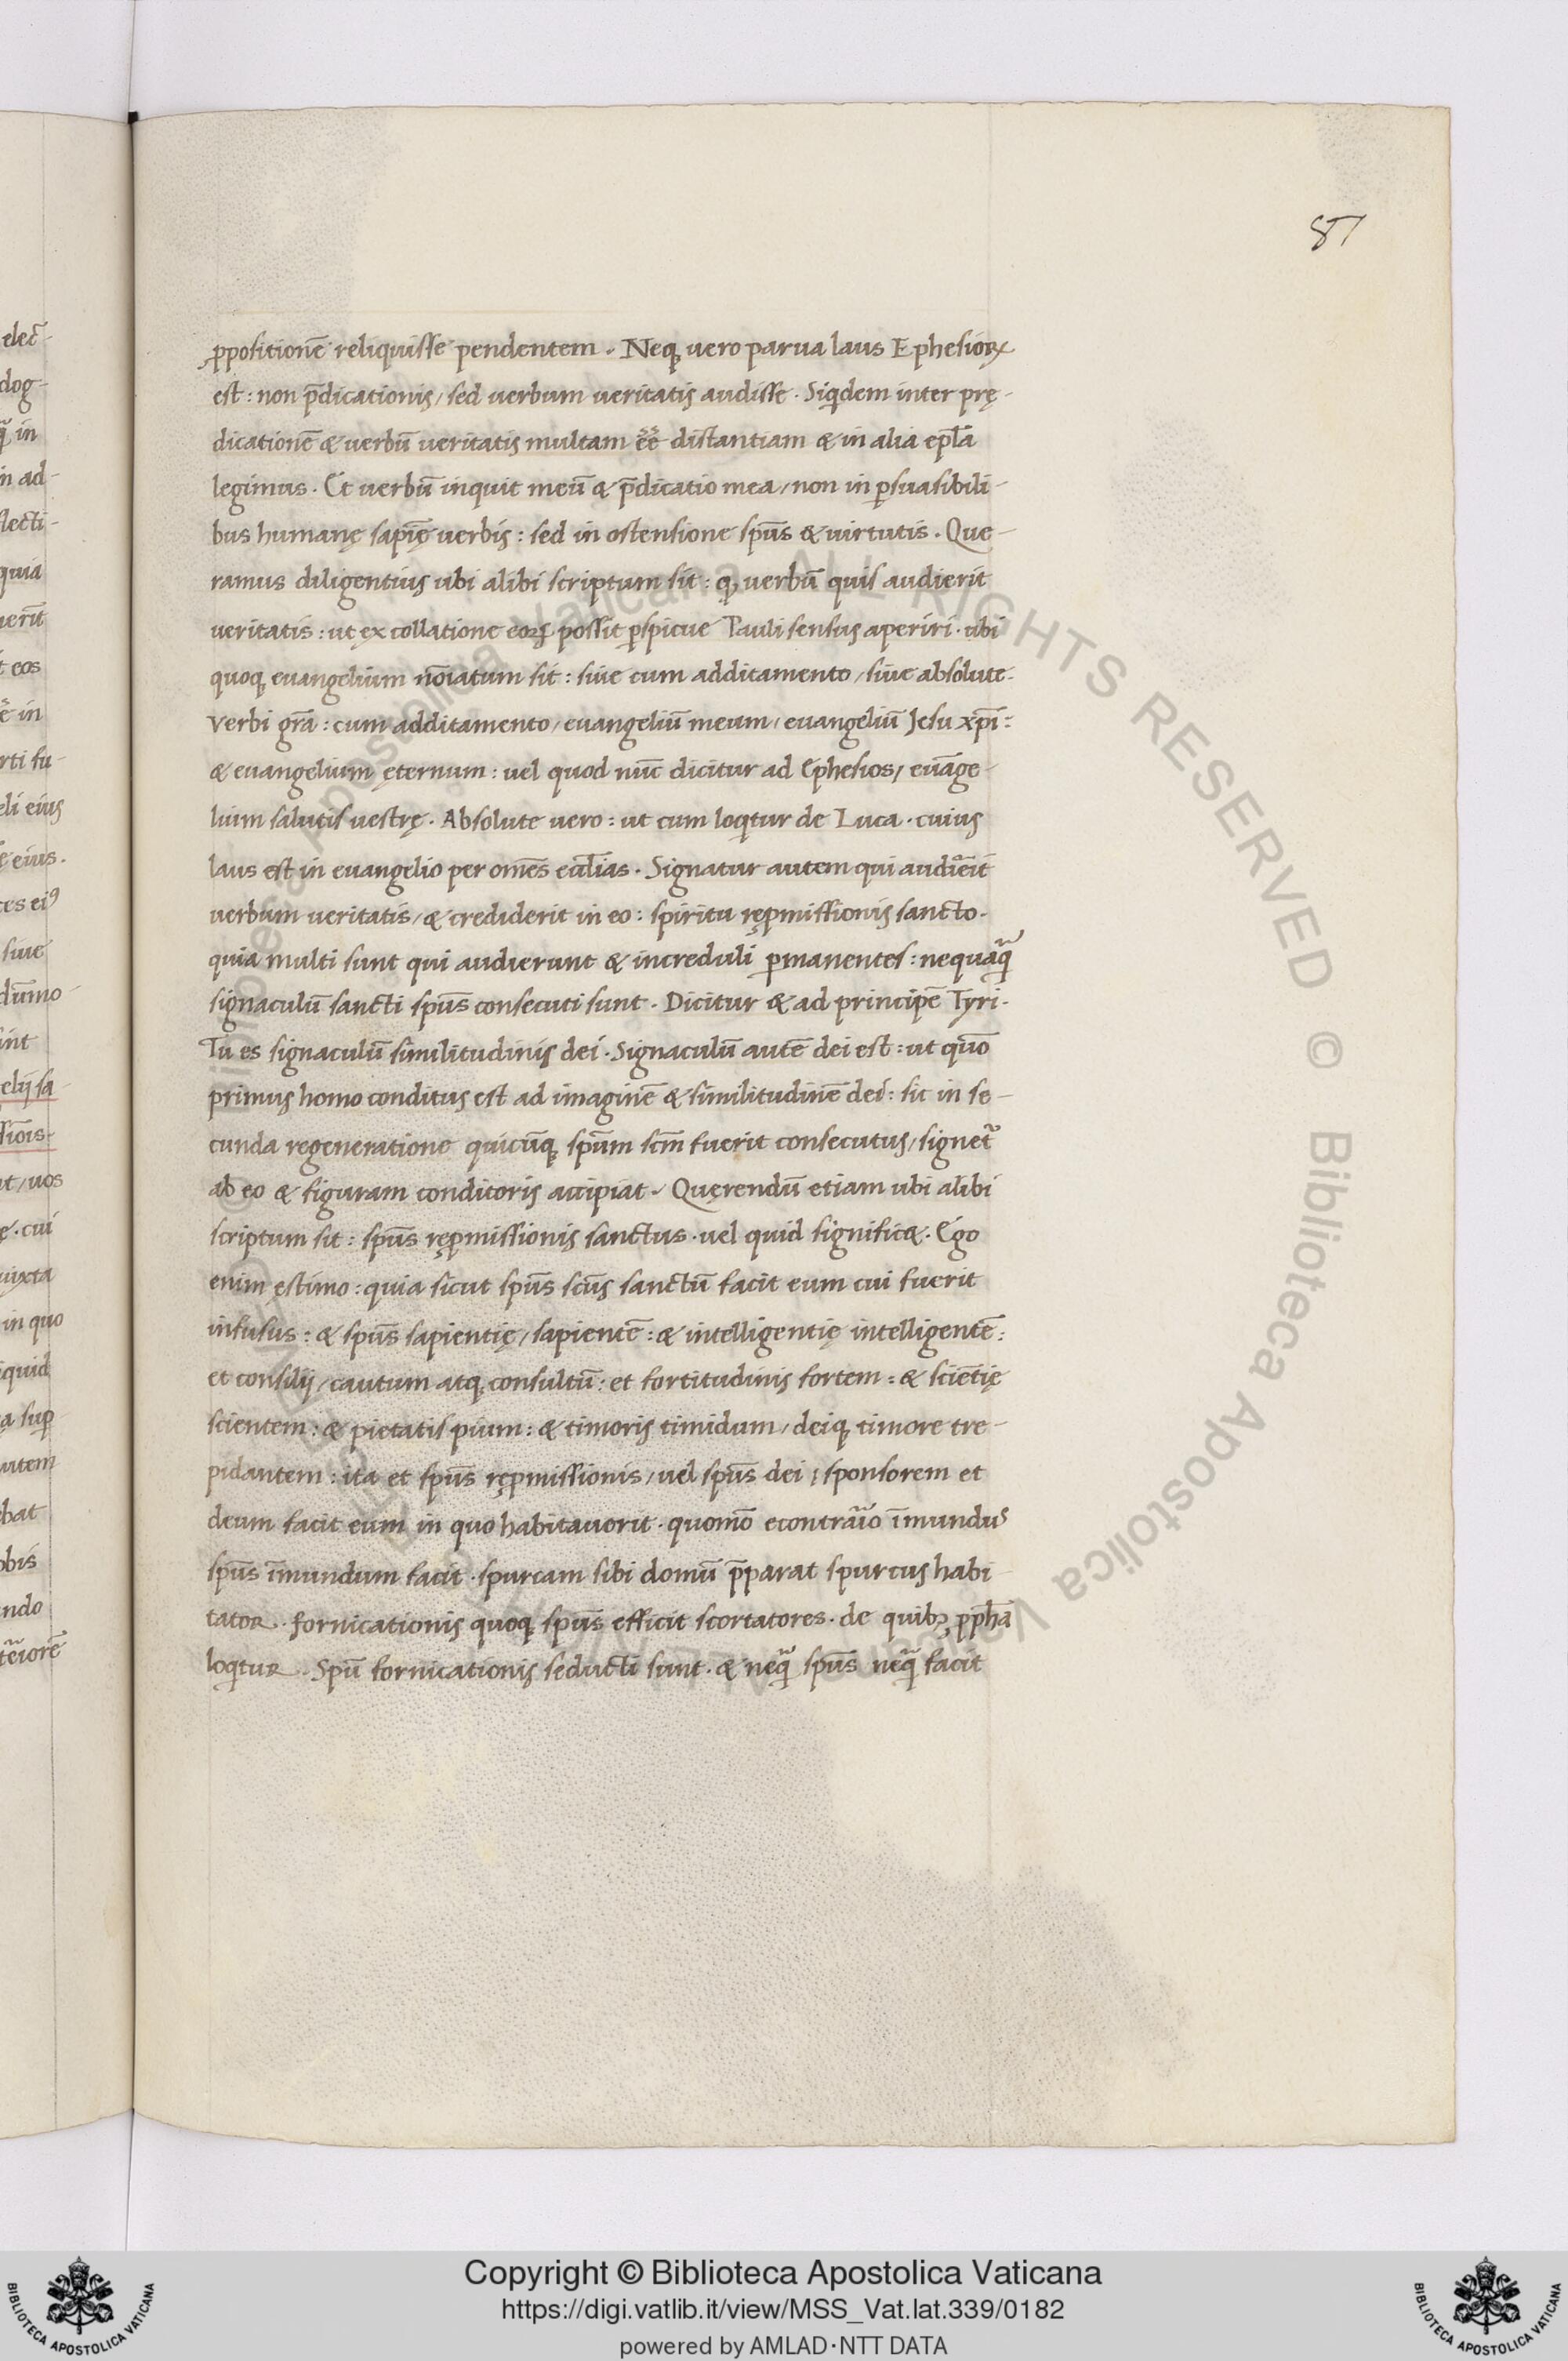 87
ꝓpositionē reliquisse pendentem. Neqꝫ uero parua laus Ephesioꝝ
est: non p̄dicationis, sed uerbum ueritatis audisse. Siqdem inter prę-
dicationē & uerbū ueritatis multam eē distantiam & in alia epl̄a
legimus. Et uerbū inquit meū & p̄dicatio mea, non in ꝑsuasibili-
bus humanę sapię̄ uerbis: sed in ostensione spūs & uirtutis. Que-
ramus diligentius ubi alibi scriptum sit: qꝫ uerbū quis audierit
ueritatis: ut ex collatione eoꝝ possit ꝑspicue Pauli sensus aperiri. ubi
quoqꝫ euangelium noīatum sit: siue cum additamento, siue absolute.
Verbi gr̄a: cum additamento, euangeliū meum, euangeliū Jesu xp̄i:
& euangelium ęternum: uel quod nūc dicitur ad Ephesios, euāge-
lium salutis uestrę. Absolute uero: ut cum loqitur de Luca. cuius
laus est in euangelio per om̄es eccl̄ias. Signatur autem qui audierit
uerbum ueritatis, & crediderit in eo: spiritu reꝓmissionis sancto.
quia multi sunt qui audierunt & increduli ꝑmanentes: nequaqᷓ
signaculū sancti spūs consecuti sunt. Dicitur & ad principē Tyri.
Tu es signaculū similitudinis dei. Signaculū autē dei est: ut quō
primus homo conditus est ad imaginē & similitudinē dei: sic in se-
cunda regeneratione quicūqꝫ spūm scm̄ fuerit consecutus, signetᷣ
ab eo & figuram conditoris accipiat. Quęrendū etiam ubi alibi
scriptum sit: spūs reꝓmissionis sanctus. uel quid signific&. Ego
enim ęstimo: quia sicut spūs scūs sanctū facit eum cui fuerit
infusus: & spūs sapientię, sapientē: & intelligentię intelligentē:
et consilij, cautum atqꝫ consultū: et fortitudinis fortem: & sciētię
scientem: & pietatis pium: & timoris timidum, deiqꝫ timore tre-
pidantem: ita et spūs reꝓmissionis, uel spūs dei, sponsorem et
deum facit eum in quo habitauerit. quomō econtraᷓio īmundus
spūs īmundum facit. spurcam sibi domū p̄parat spurcus habi-
tator. fornicationis quoqꝫ spūs efficit scortatores. de quibꝫ ꝓph̄a
loqitur. Spū fornicationis seducti sunt. & neqᷓ spūs neqᷓ facit
elec̄-
dog-
qᷓ in
in ad-
flecti-
quia
uerīt
eos
in
rti fu-
eli eius
eius.
ces eiꝰ
siue
dūmo-
int
elij sa-
siōis-
ut, uos
ę. cui
iuxta
in quo
iquid
a suꝑ
autem
ebat
obis
ando
teriorē
© Biblioteca Apostolica Vaticana ALL RIGHTS RESERVED © Biblioteca Apostolica Vaticana ALL RIGHTS RESERVED
Copyright © Biblioteca Apostolica Vaticana
https://digi.vatlib.it/view/MSS_Vat.lat.339/0182
powered by AMLAD·NTT DATA
BIBLIOTECA APOSTOLICA VATICANA
BIBLIOTECA APOSTOLICA VATICANA